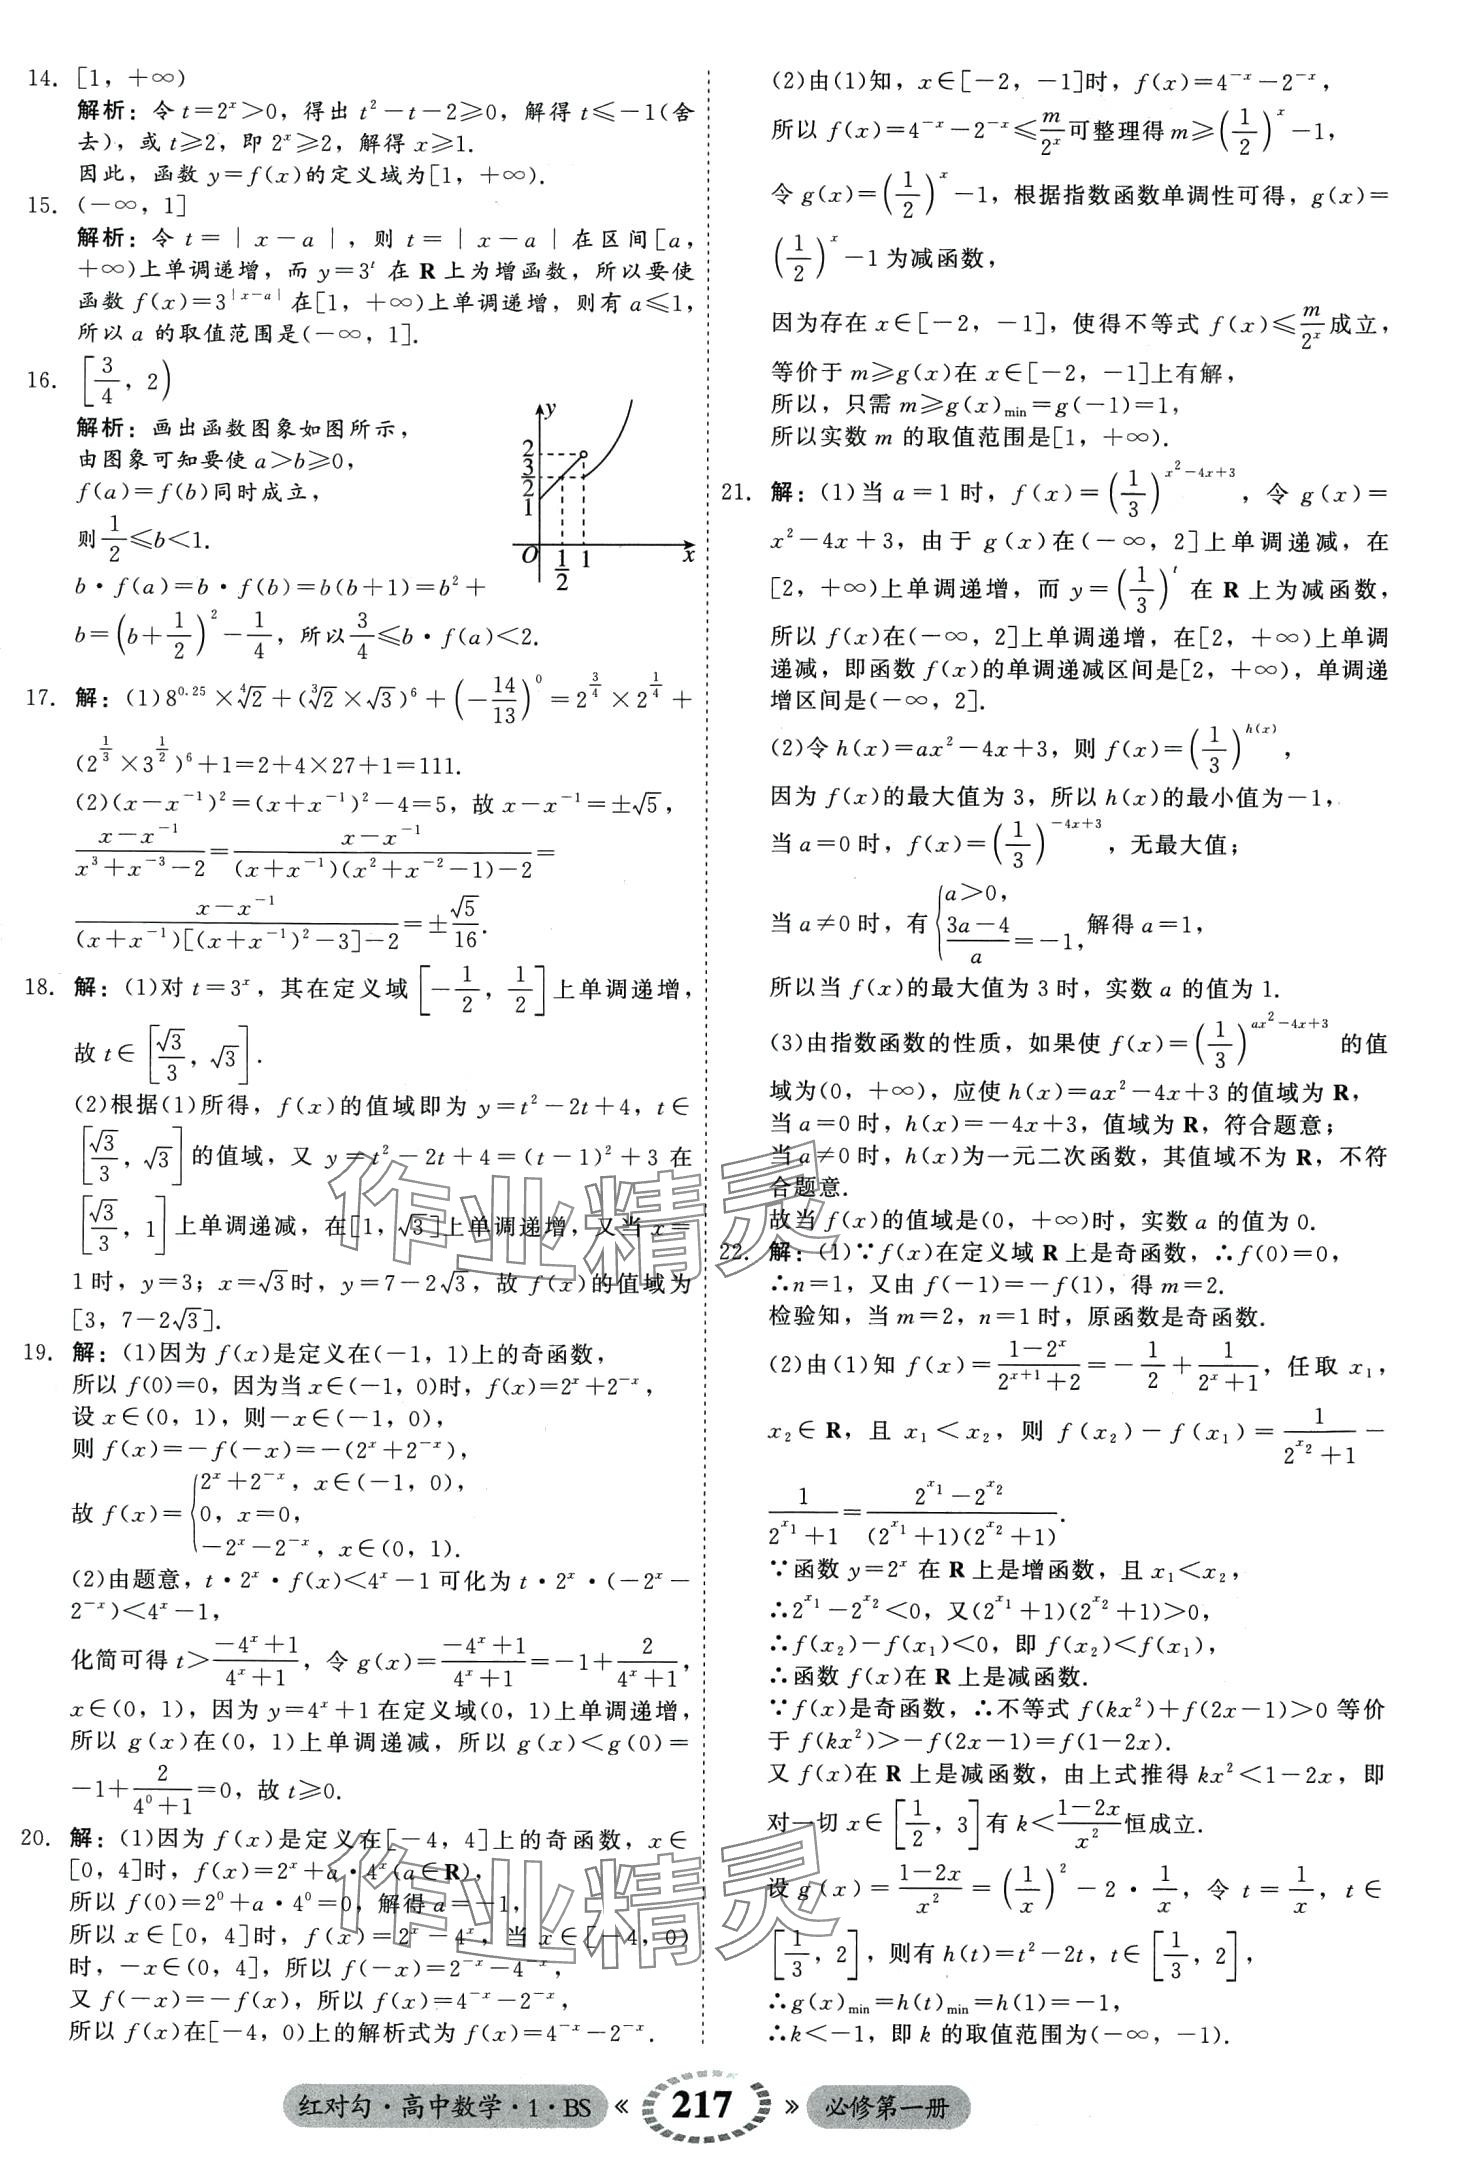 14. [1，+∞)
解析：令 t=2^x>0，得出 t^2-t-2≥0，解得 t≤-1(舍
去)，或 t≥2，即 2^x≥2，解得 x≥1.
因此，函数 y=f(x)的定义域为[1，+∞).
15. (-∞，1]
解析：令 t=|x-a|，则 t=|x-a|在区间[a，
+∞)上单调递增，而 y=3^t 在 R 上为增函数，所以要使
函数 f(x)=3^|x-a| 在[1，+∞)上单调递增，则有 a≤1，
所以 a 的取值范围是(-∞，1].
16. [3/4，2)
解析：画出函数图象如图所示，
由图象可知要使 a>b≥0，
f(a)=f(b)同时成立，
则 1/2≤b<1.
b·f(a)=b·f(b)=b(b+1)=b^2+
b=(b+1/2)^2-1/4，所以 3/4≤b·f(a)<2.
y
2
3/2
1
O 1/2 1 x
17. 解：(1)8^0.25×∜2+(∛2×√3)^6+(-14/13)^0=2^(3/4)×2^(1/4)+
(2^(1/3)×3^(1/2))^6+1=2+4×27+1=111.
(2)(x-x^-1)^2=(x+x^-1)^2-4=5，故 x-x^-1=±√5，
(x-x^-1)/(x^3+x^-3-2)=(x-x^-1)/((x+x^-1)(x^2+x^-2-1)-2)=
(x-x^-1)/((x+x^-1)[(x+x^-1)^2-3]-2)=±√5/16.
18. 解：(1)对 t=3^x，其在定义域[-1/2，1/2]上单调递增，
故 t∈[√3/3，√3].
(2)根据(1)所得，f(x)的值域即为 y=t^2-2t+4，t∈
[√3/3，√3]的值域，又 y=t^2-2t+4=(t-1)^2+3 在
[√3/3，1]上单调递减，在[1，√3]上单调递增，又当 x=
1 时，y=3；x=√3时，y=7-2√3，故 f(x)的值域为
[3，7-2√3].
19. 解：(1)因为 f(x)是定义在(-1，1)上的奇函数，
所以 f(0)=0，因为当 x∈(-1，0)时，f(x)=2^x+2^-x，
设 x∈(0，1)，则-x∈(-1，0)，
则 f(x)=-f(-x)=-(2^x+2^-x)，
2^x+2^-x，x∈(-1，0)，
故 f(x)={0，x=0，
-2^x-2^-x，x∈(0，1).
(2)由题意，t·2^x·f(x)<4^x-1 可化为 t·2^x·(-2^x-
2^-x)<4^x-1，
化简可得 t>(-4^x+1)/(4^x+1)，令 g(x)=(-4^x+1)/(4^x+1)=-1+2/(4^x+1)，
x∈(0，1)，因为 y=4^x+1 在定义域(0，1)上单调递增，
所以 g(x)在(0，1)上单调递减，所以 g(x)<g(0)=
-1+2/(4^0+1)=0，故 t≥0.
20. 解：(1)因为 f(x)是定义在[-4，4]上的奇函数，x∈
[0，4]时，f(x)=2^x+a·4^x(a∈R)，
所以 f(0)=2^0+a·4^0=0，解得 a=-1，
所以 x∈[0，4]时，f(x)=2^x-4^x，当 x∈[-4，0)
时，-x∈(0，4]，所以 f(-x)=2^-x-4^-x，
又 f(-x)=-f(x)，所以 f(x)=4^-x-2^-x，
所以 f(x)在[-4，0)上的解析式为 f(x)=4^-x-2^-x.
(2)由(1)知，x∈[-2，-1]时，f(x)=4^-x-2^-x，
所以 f(x)=4^-x-2^-x≤m/2^x可整理得 m≥(1/2)^x-1，
令 g(x)=(1/2)^x-1，根据指数函数单调性可得，g(x)=
(1/2)^x-1 为减函数，
因为存在 x∈[-2，-1]，使得不等式 f(x)≤m/2^x成立，
等价于 m≥g(x)在 x∈[-2，-1]上有解，
所以，只需 m≥g(x)min=g(-1)=1，
所以实数 m 的取值范围是[1，+∞).
21. 解：(1)当 a=1 时，f(x)=(1/3)^(x^2-4x+3)，令 g(x)=
x^2-4x+3，由于 g(x)在(-∞，2]上单调递减，在
[2，+∞)上单调递增，而 y=(1/3)^t 在 R 上为减函数，
所以 f(x)在(-∞，2]上单调递增，在[2，+∞)上单调
递减，即函数 f(x)的单调递减区间是[2，+∞)，单调递
增区间是(-∞，2].
(2)令 h(x)=ax^2-4x+3，则 f(x)=(1/3)^h(x)，
因为 f(x)的最大值为 3，所以 h(x)的最小值为-1，
当 a=0 时，f(x)=(1/3)^(-4x+3)，无最大值；
当 a≠0 时，有{a>0，(3a-4)/a=-1，解得 a=1，
所以当 f(x)的最大值为 3 时，实数 a 的值为 1.
(3)由指数函数的性质，如果使 f(x)=(1/3)^(ax^2-4x+3) 的值
域为(0，+∞)，应使 h(x)=ax^2-4x+3 的值域为 R，
当 a=0 时，h(x)=-4x+3，值域为 R，符合题意；
当 a≠0 时，h(x)为一元二次函数，其值域不为 R，不符
合题意.
故当 f(x)的值域是(0，+∞)时，实数 a 的值为 0.
22. 解：(1)∵f(x)在定义域 R 上是奇函数，∴f(0)=0，
∴n=1，又由 f(-1)=-f(1)，得 m=2.
检验知，当 m=2，n=1 时，原函数是奇函数.
(2)由(1)知 f(x)=(1-2^x)/(2^(x+1)+2)=-1/2+1/(2^x+1)，任取 x₁，
x₂∈R，且 x₁<x₂，则 f(x₂)-f(x₁)=1/(2^x₂+1)-
1/(2^x₁+1)=(2^x₁-2^x₂)/((2^x₁+1)(2^x₂+1)).
∵函数 y=2^x 在 R 上是增函数，且 x₁<x₂，
∴2^x₁-2^x₂<0，又(2^x₁+1)(2^x₂+1)>0，
∴f(x₂)-f(x₁)<0，即 f(x₂)<f(x₁)，
∴函数 f(x)在 R 上是减函数.
∵f(x)是奇函数，∴不等式 f(kx^2)+f(2x-1)>0 等价
于 f(kx^2)>-f(2x-1)=f(1-2x).
又 f(x)在 R 上是减函数，由上式推得 kx^2<1-2x，即
对一切 x∈[1/2，3]有 k<(1-2x)/x^2恒成立.
设 g(x)=(1-2x)/x^2=(1/x)^2-2·1/x，令 t=1/x，t∈
[1/3，2]，则有 h(t)=t^2-2t，t∈[1/3，2]，
∴g(x)min=h(t)min=h(1)=-1，
∴k<-1，即 k 的取值范围为(-∞，-1).
作业精灵
作业精灵
红对勾·高中数学·1·BS « 217 » 必修第一册